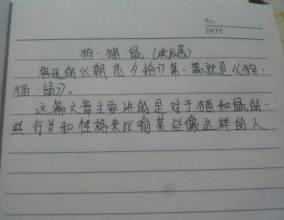 No.
DATE
狗·猫·鼠(读后感)
鲁迅的《朝花夕拾》第一篇就是《狗·
猫·鼠》。
这篇文章主要讲的是对于猫和鼠的一
些行为和性格来比喻某些像这样的人